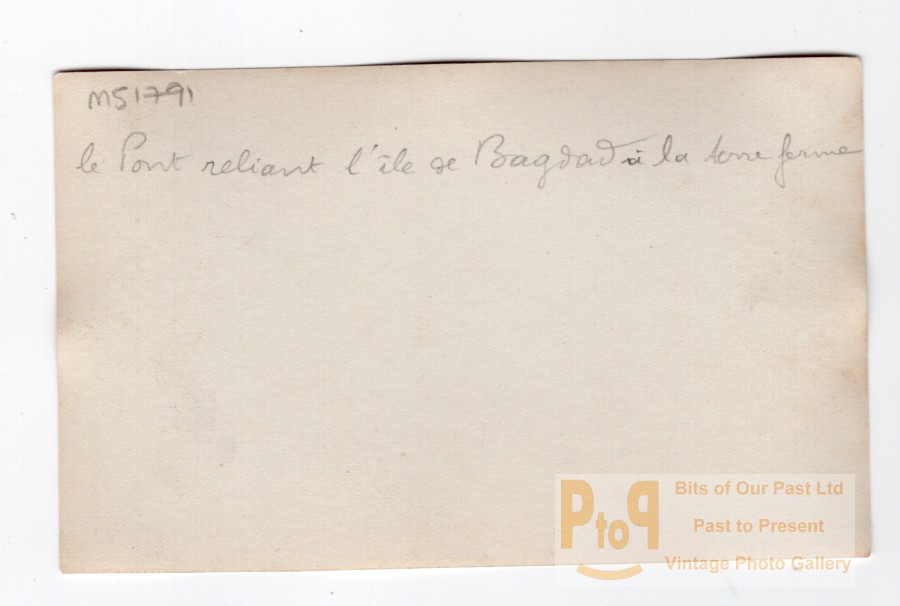 MS1791
le Pont reliant l'île de Bagdad à la terre ferme
PtoP
Bits of Our Past Ltd
Past to Present
Vintage Photo Gallery